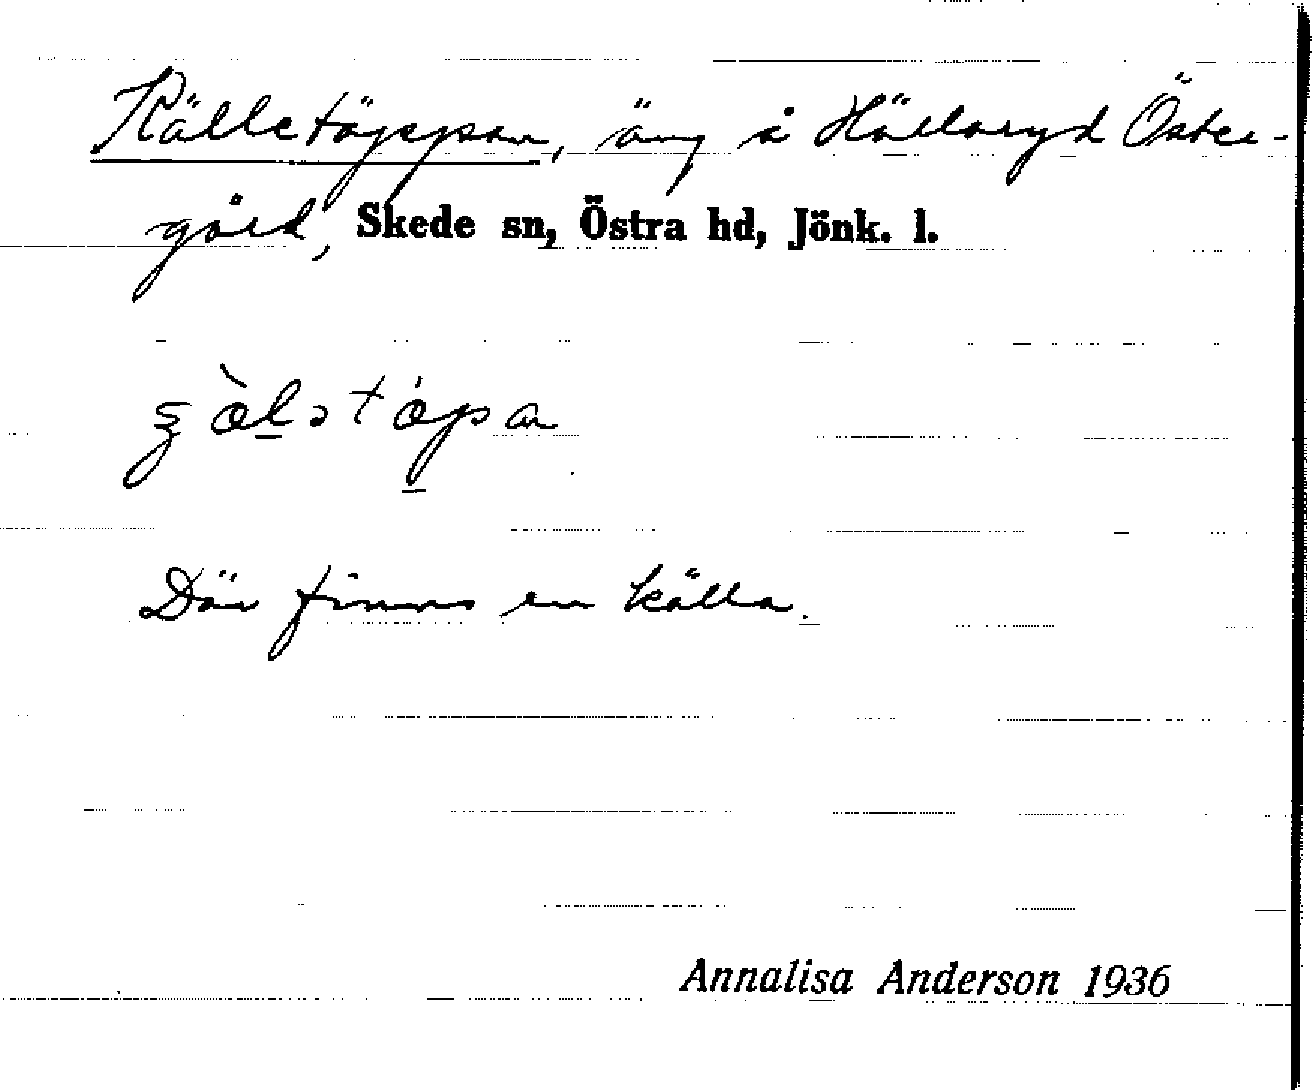 Källetäppan, äng å Hälleryd Öster-
gård, Skede sn, Östra hd, Jönk. l.
Där finns en källa.
Annalisa Anderson 1936